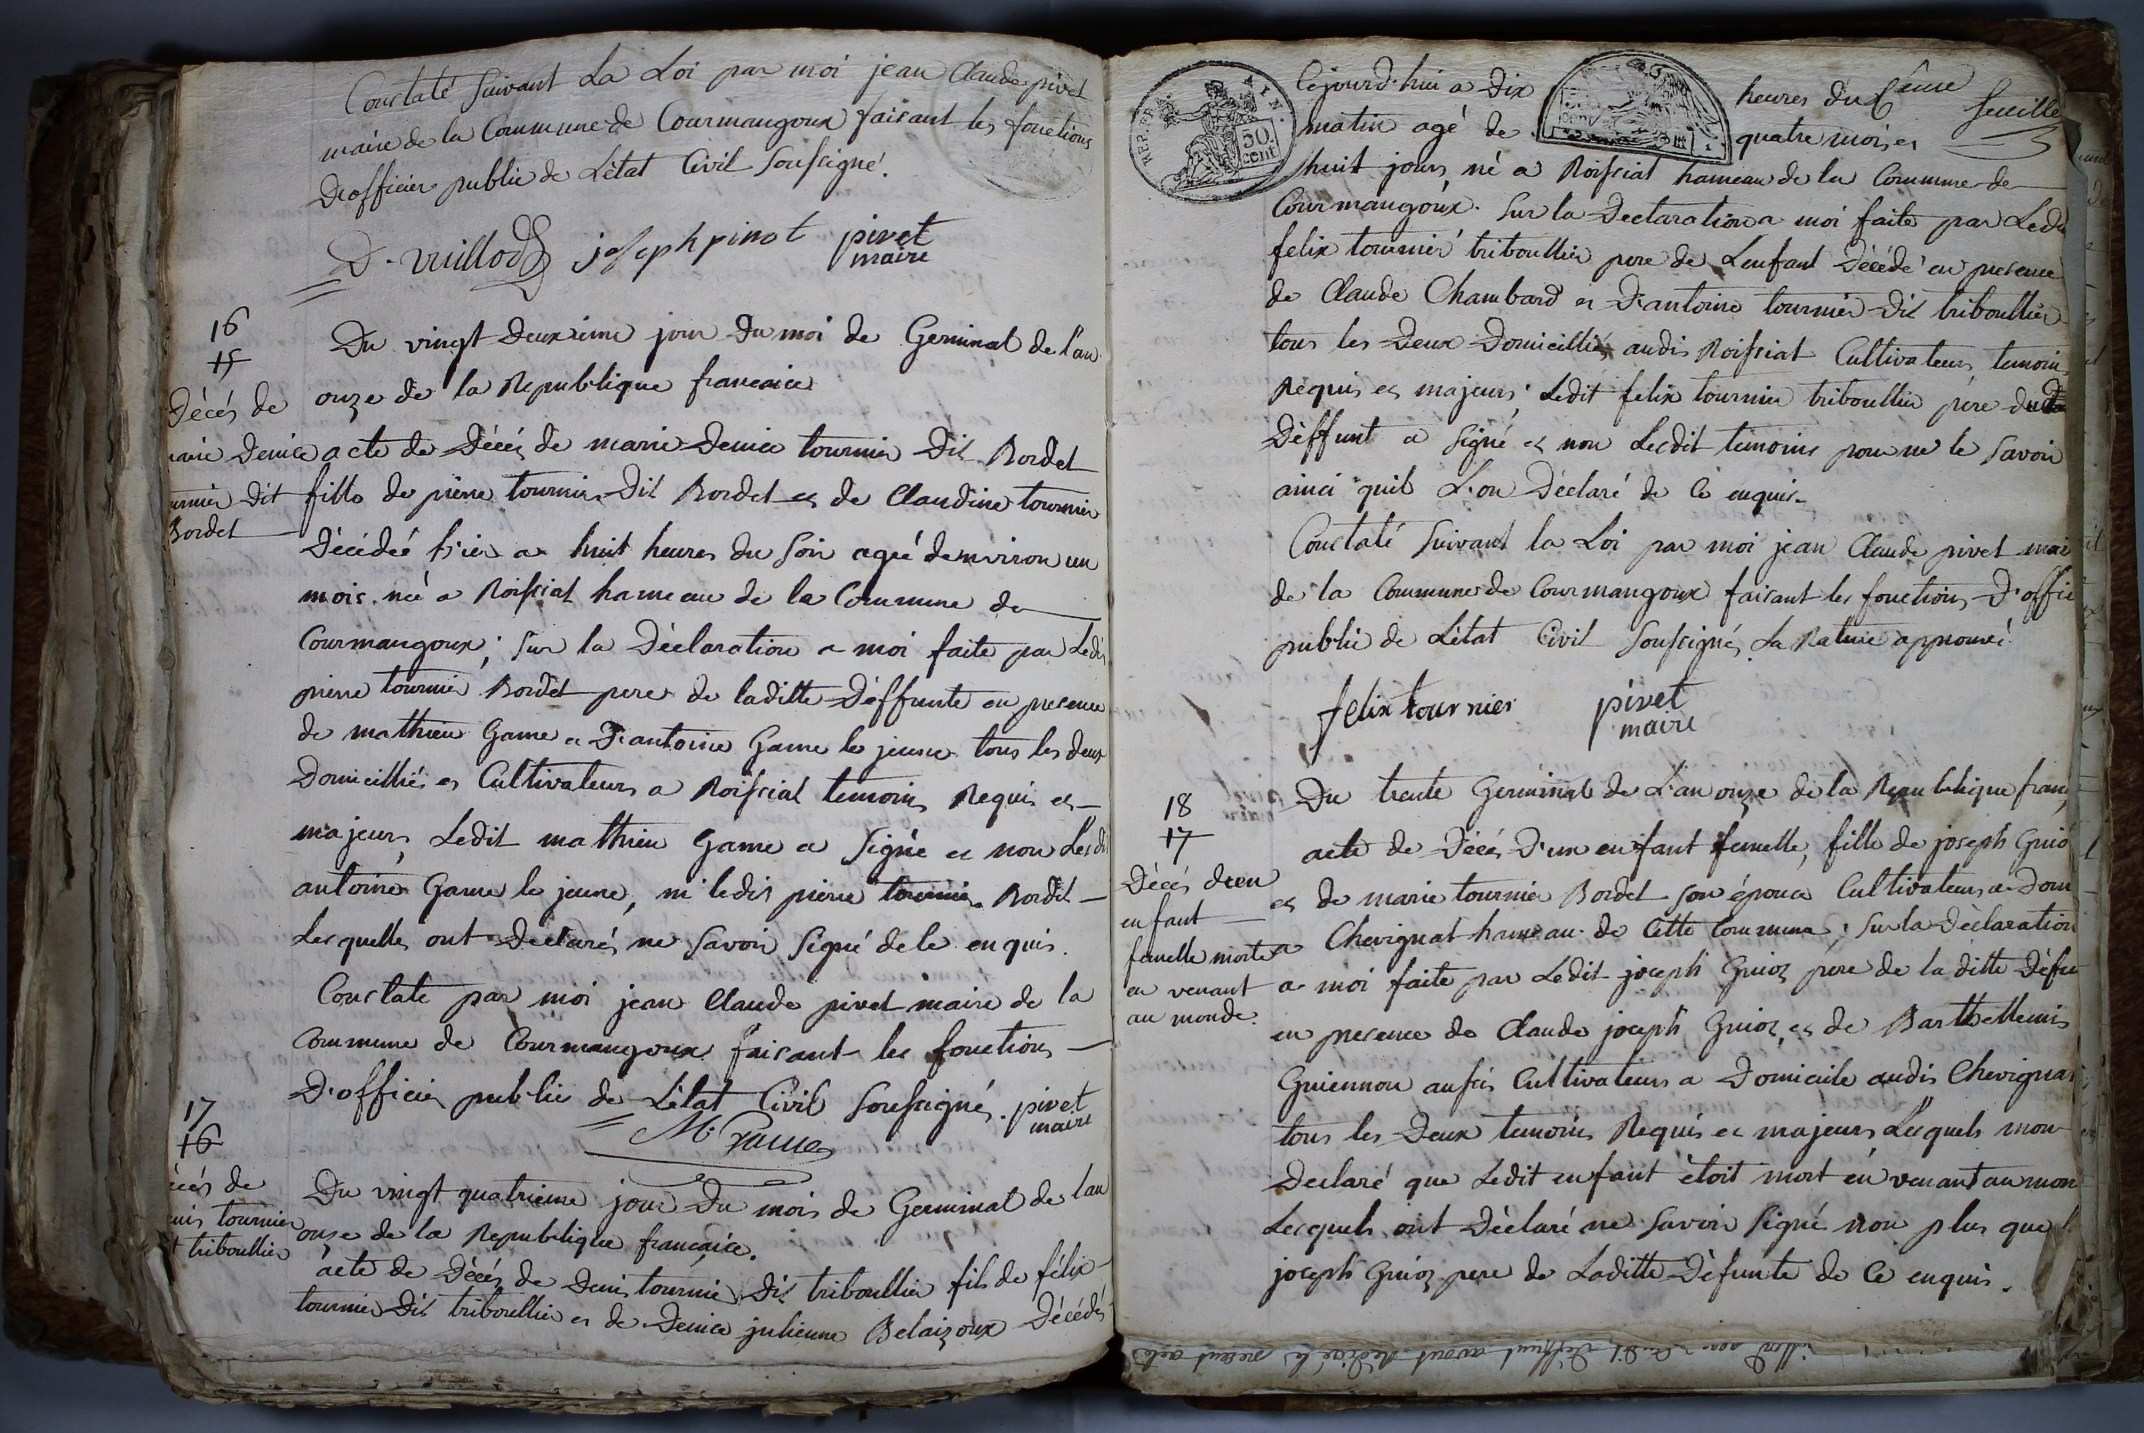 Constaté Suivant La Loi par moi jean Claude pivet
maire de la Commune de Courmangoux faisant les fonctions
D'officier public de L'état Civil Soussigné.
D. vuillod joseph pinot pivet
maire
16
15
Décés de
marie Denice
tournier Dit
Bordet
Du vingt Deuxieme jour Du moi de Germinal de l'an
onze de la Republique francaice
acte de Décés de marie Denice tournier Dit Bordet
fille de pierre tournier Dit Bordet et de Claudine tournier
Décédée hier a huit heures du Soir ageé denviron un
mois. née a Roissiat hameau de la Commune de
Courmangoux; Sur la Déclaration a moi faite par Ledit
pierre tournier Bordet pere de laditte Déffunte en presence
de mathieu Game et D'antoine Game le jeune tous les deux
Domicilliés et Cultivateurs a Roissiat temoins Requis et
majeurs Ledit mathieu Game a Signé et non Ledit
antoine Game le jeune, ni ledit pierre tournier Bordet
Lesquelles ont Declarés ne Savoir Signé de Ce enquis.
Constaté par moi jean Claude pivet maire de la
Commune de Courmangoux faisant les fonctions
D'officier public de L'état Civil Soussigné. pivet
maire
M. Game
17
16
Décés de
Denis tournier
dit triboullier
Du vingt quatrieme jour Du mois de Germinal de lan
onze de la Republique françaice.
acte de Décés de Denis tournier Dit triboullier fils de félix
tournier Dit triboullier et de Denice julienne Belaizoux Décédé
6eme
feuille
Cejourd'hui a Dix heures du
matin agé de quatre mois et
huit jours, né a Roissiat hameau de la Commune de
Courmangoux. Sur la Déclaration a moi faite par Ledit
felix tournier triboullier pere de L'enfant Décédé en presence
de Claude Chambard et D'antoine tournier Dit triboullier
tous les Deux Domicilliés audit Roissiat Cultivateurs temoins
Requis et majeurs. Ledit felix tournier triboullier père dud
Déffunt a Signé et non Lesdit temoins pour ne le Savoir
ainci quil L'on Déclaré de Ce enquis.
Constaté Suivant la Loi par moi jean Claude pivet mair
de la Commune de Courmangoux faisant les fonctions D'offici
public de L'état Civil Soussigné. La Rature approuvé
felix tournier pivet
maire
18
17
Décés d'un
enfant
femelle morte
en venant
au monde.
Du trente Germinal de L'an onze de la Republique franç
acte de Décés D'un enfant femelle, fille de joseph Guioz
et de marie tournier Bordet son épouce Cultivateurs a Dom
a Chevignat hameau de Cette Commune; Sur la Déclaration
a moi faite par Ledit joseph Guioz pere de la ditte Défu
en presence de Claude joseph Guioz, et de Barthellemis
Guiennon aussis Cultivateurs a Domicile audis Chevignat
tous les Deux temoins Requis et majeurs Lesquels mon
Declaré que Ledit enfant étoit mort en venant au mon
Lesquels ont Déclaré ne Savoir Signé non plus que l
joseph Guioz pere de Laditte Défunte de Ce enquis.
REP. FRA.
50
CENT